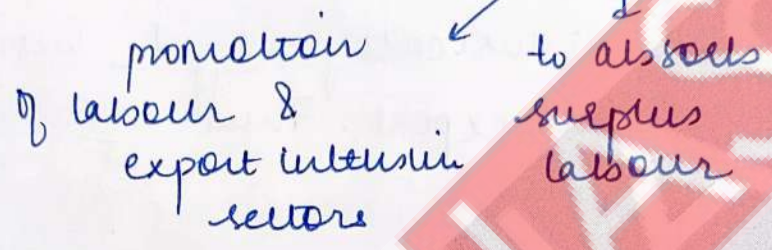 promotion
of labour &
export intensive
sectors
to absorb
surplus
labour